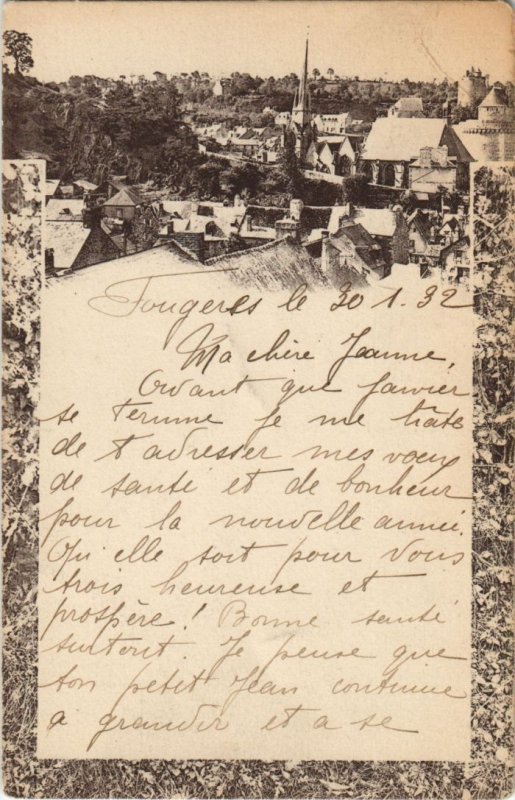 Fougères le 30.1.32
Ma chère Jeanne,
Avant que janvier
se termine je me hâte
de t'adresser mes voeux
de santé et de bonheur
pour la nouvelle année.
Qu'elle soit pour vous
trois heureuse et
prospère! Bonne santé
surtout. Je pense que
ton petit Jean continue
à grandir et a se